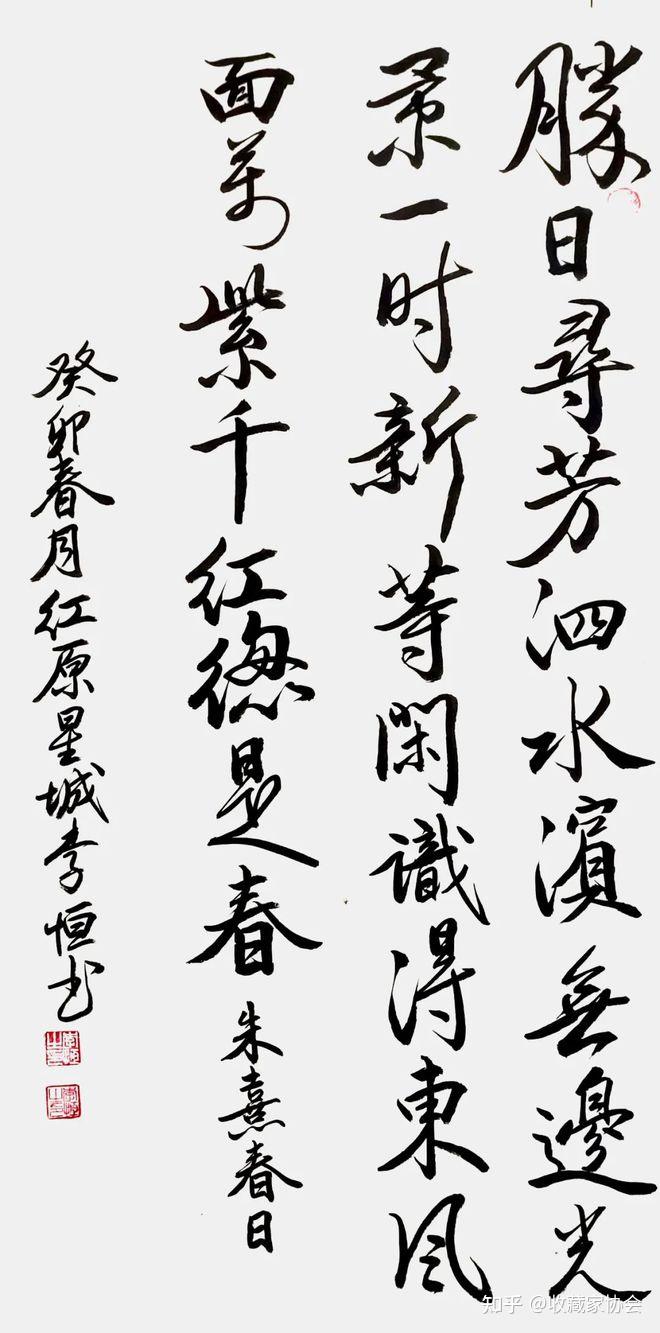 勝日尋芳泗水濱無邊光
景一时新等閑識得東風
面萬紫千红緫是春
朱熹春日
癸卯春月红原星城李恒书
知乎 @收藏家协会